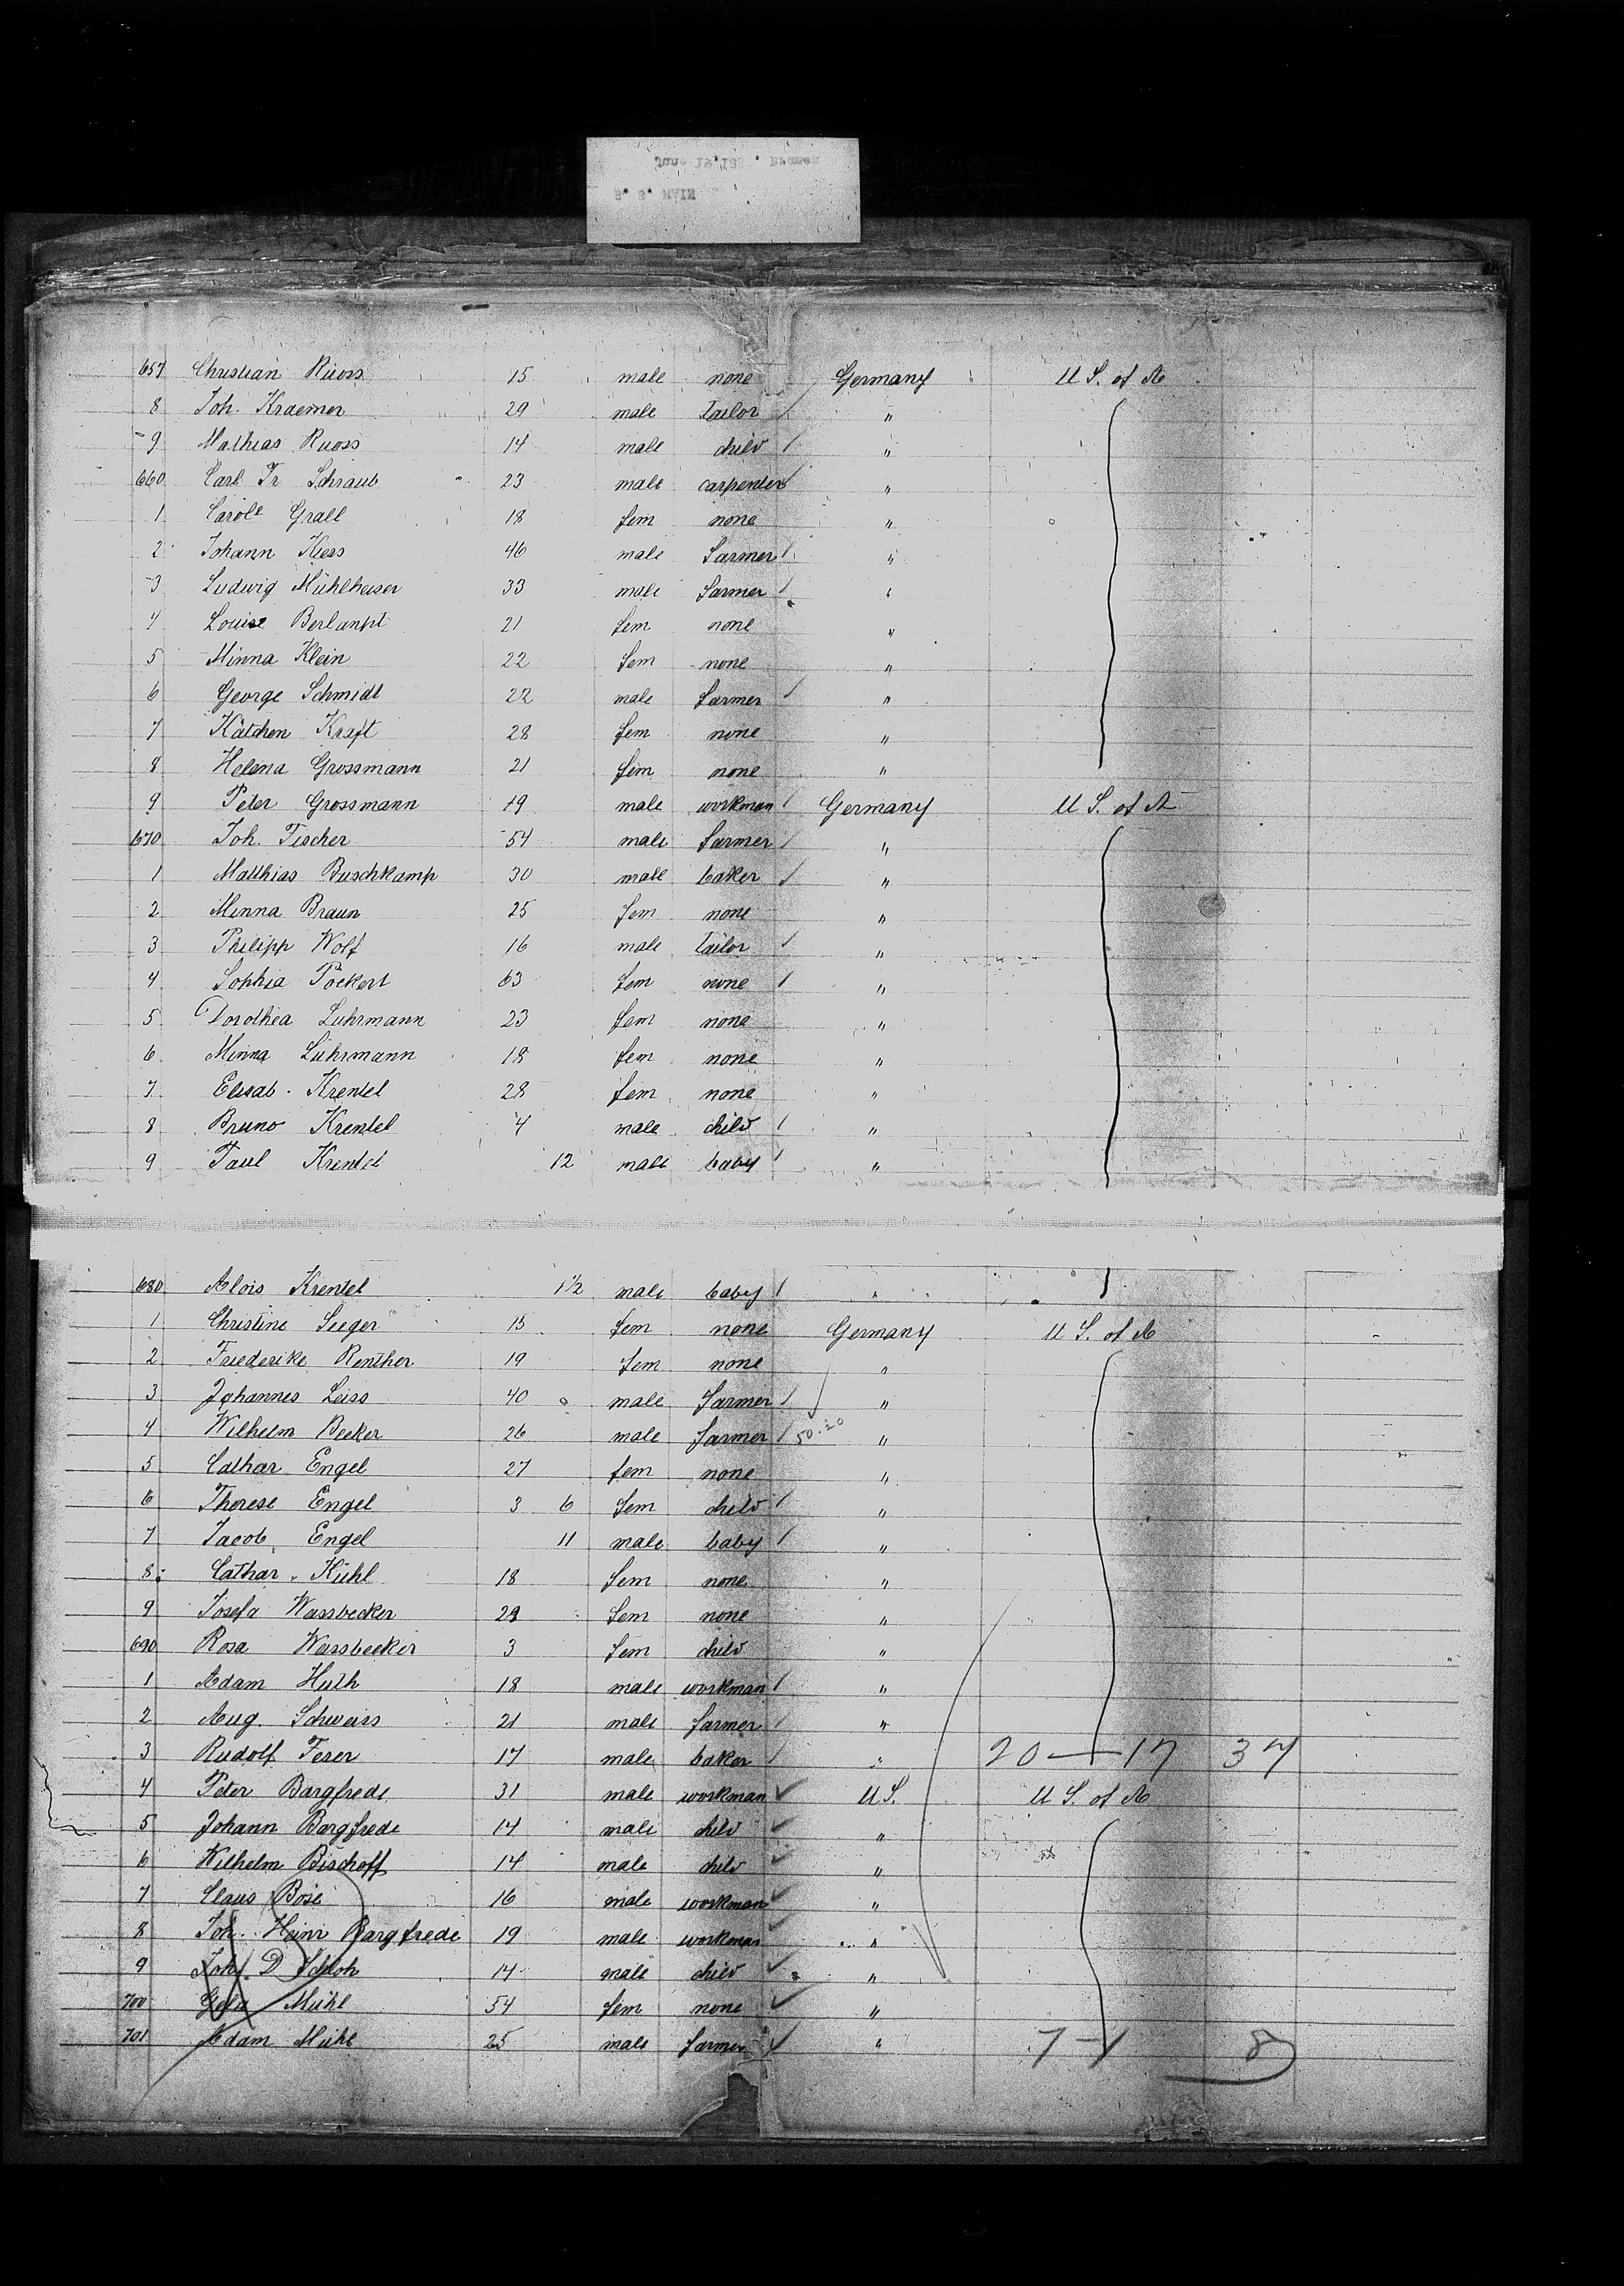 June 19, 188 . Bremen
S. S. MAIN
657 Christian Ruoss 15 male none Germany U S. of A
8 Joh. Kraemer 29 male tailor "
9 Mathias Ruoss 14 male child "
660 Carl Fr Schraub 23 male carpenter "
1 Carole Grall 18 fem none "
2 Johann Kiess 46 male farmer "
3 Ludwig Mühlheuser 33 male farmer "
4 Louise 21 fem none "
5 Minna Klein 22 fem none "
6 George Schmidt 22 male farmer "
7 Kätchen Kraft 28 fem none "
8 Helena Grossmann 21 fem none "
9 Peter Grossmann 19 male workman Germany U S. of A
670 Joh. Fischer 54 male farmer "
1 Matthias Buschkamp 30 male baker "
2 Minna Braun 25 fem none "
3 Philipp Wolf 16 male tailor "
4 Sophia Pöckert 63 fem none "
5 Dorothea Luhrmann 23 fem none "
6 Minna Lührmann 18 fem none "
7 Elisab. Krentel 28 fem none "
8 Bruno Krentel 4 male child "
9 Paul Krentel 12 male baby "
680 Alois Krentel 1½ male baby "
1 Christine Seeger 15 fem none Germany U S. of A
2 Friederike Renther 19 fem none "
3 Johannes Leiss 40 male farmer "
4 Wilhelm Becker 26 male farmer 50.20 "
5 Cathar Engel 27 fem none "
6 Therese Engel 3 6 fem child "
7 Jacob Engel 11 male baby "
8 Cathar. Kühl 18 fem none "
9 Josefa Wassbecker 29 fem none "
690 Rosa Wassbecker 3 fem child "
1 Adam Huth 18 male workman "
2 Aug. Schweiss 21 male farmer "
3 Rudolf Feser 17 male baker " 20 — 17 37
4 Peter Bargfrede 31 male workman U S. U S. of A
5 Johann Bargfrede 14 male child "
6 Wilhelm Bischoff 14 male child "
7 Claus Bose 16 male workman "
8 Joh. Heinr Bargfrede 19 male workman "
9 Joh. D Schloh 14 male child "
700 Mühl 54 fem none "
701 Adam Mühl 25 male farmer " 7-1 8